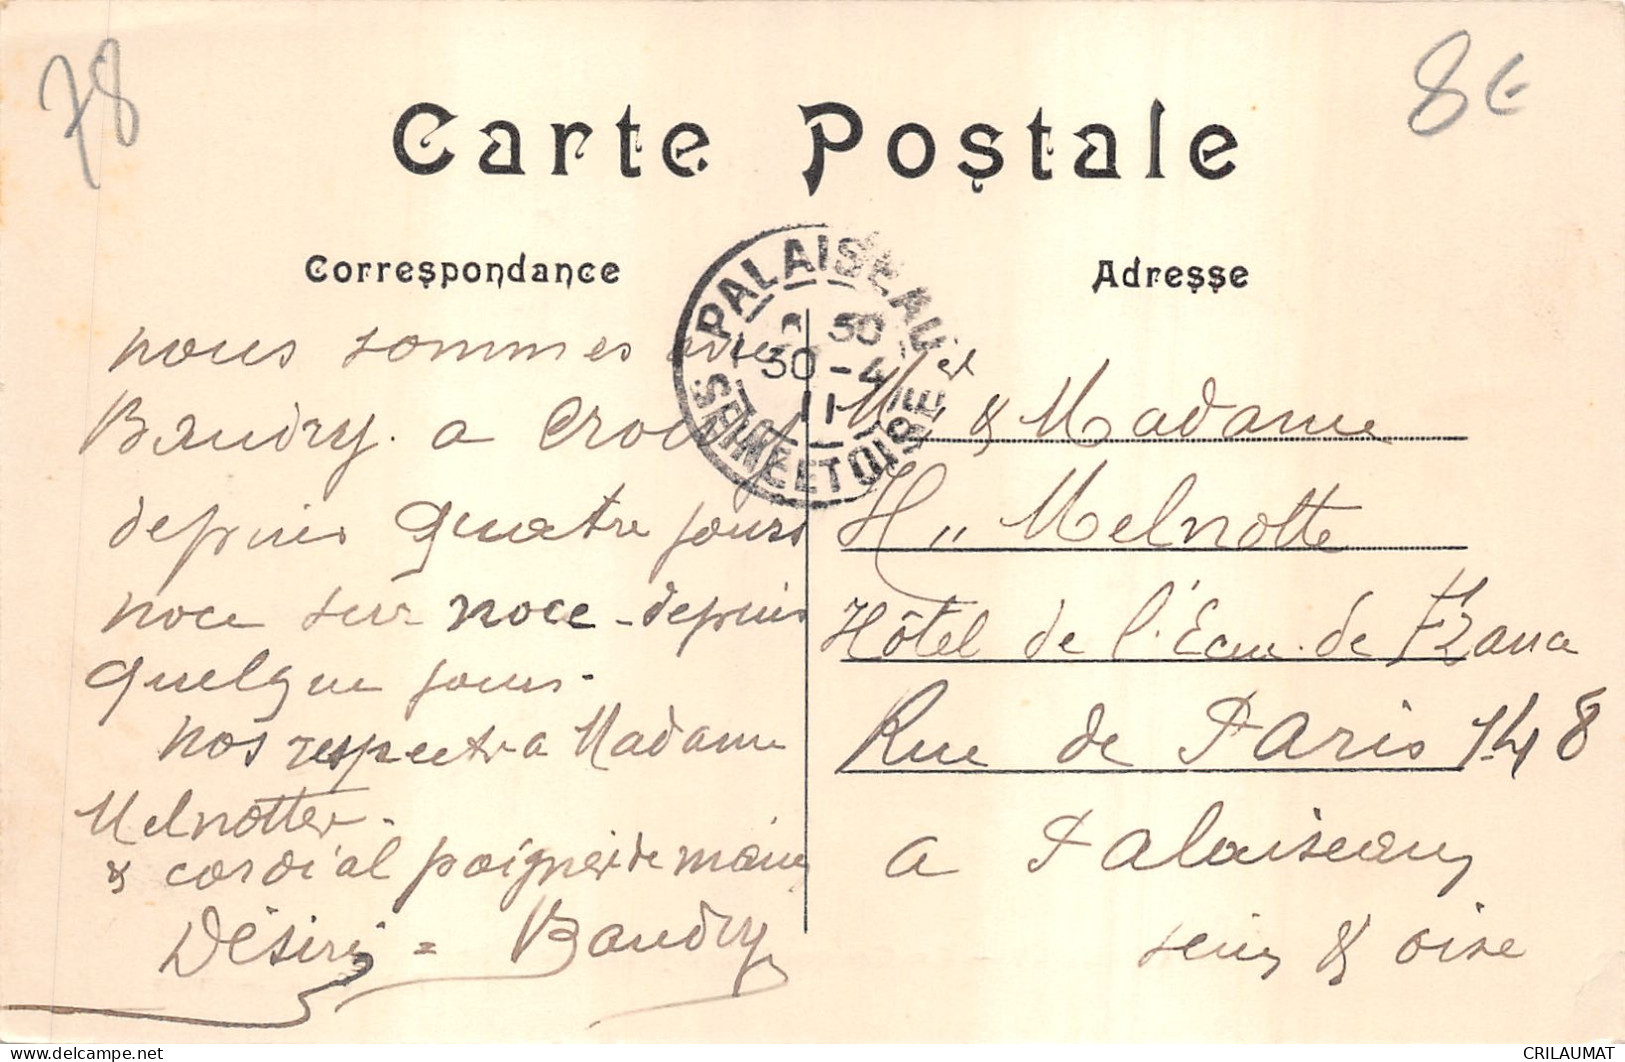 78
8€
Carte Postale
Correspondance
Adresse
PALAISEAU
SEINE ET OISE
30-4
11
nous sommes
Baudry. a
depuis quatre jours
noce sur noce - depuis
quelque jours.
nos respect a Madame
Melnotte.
& cordial poigner de main
Désiré = Baudry
Mr & Madame
H,, Melnotte
Hôtel de l'Eau de
Rue de Paris 148
a Palaiseau
seine & oise
CRILAUMAT